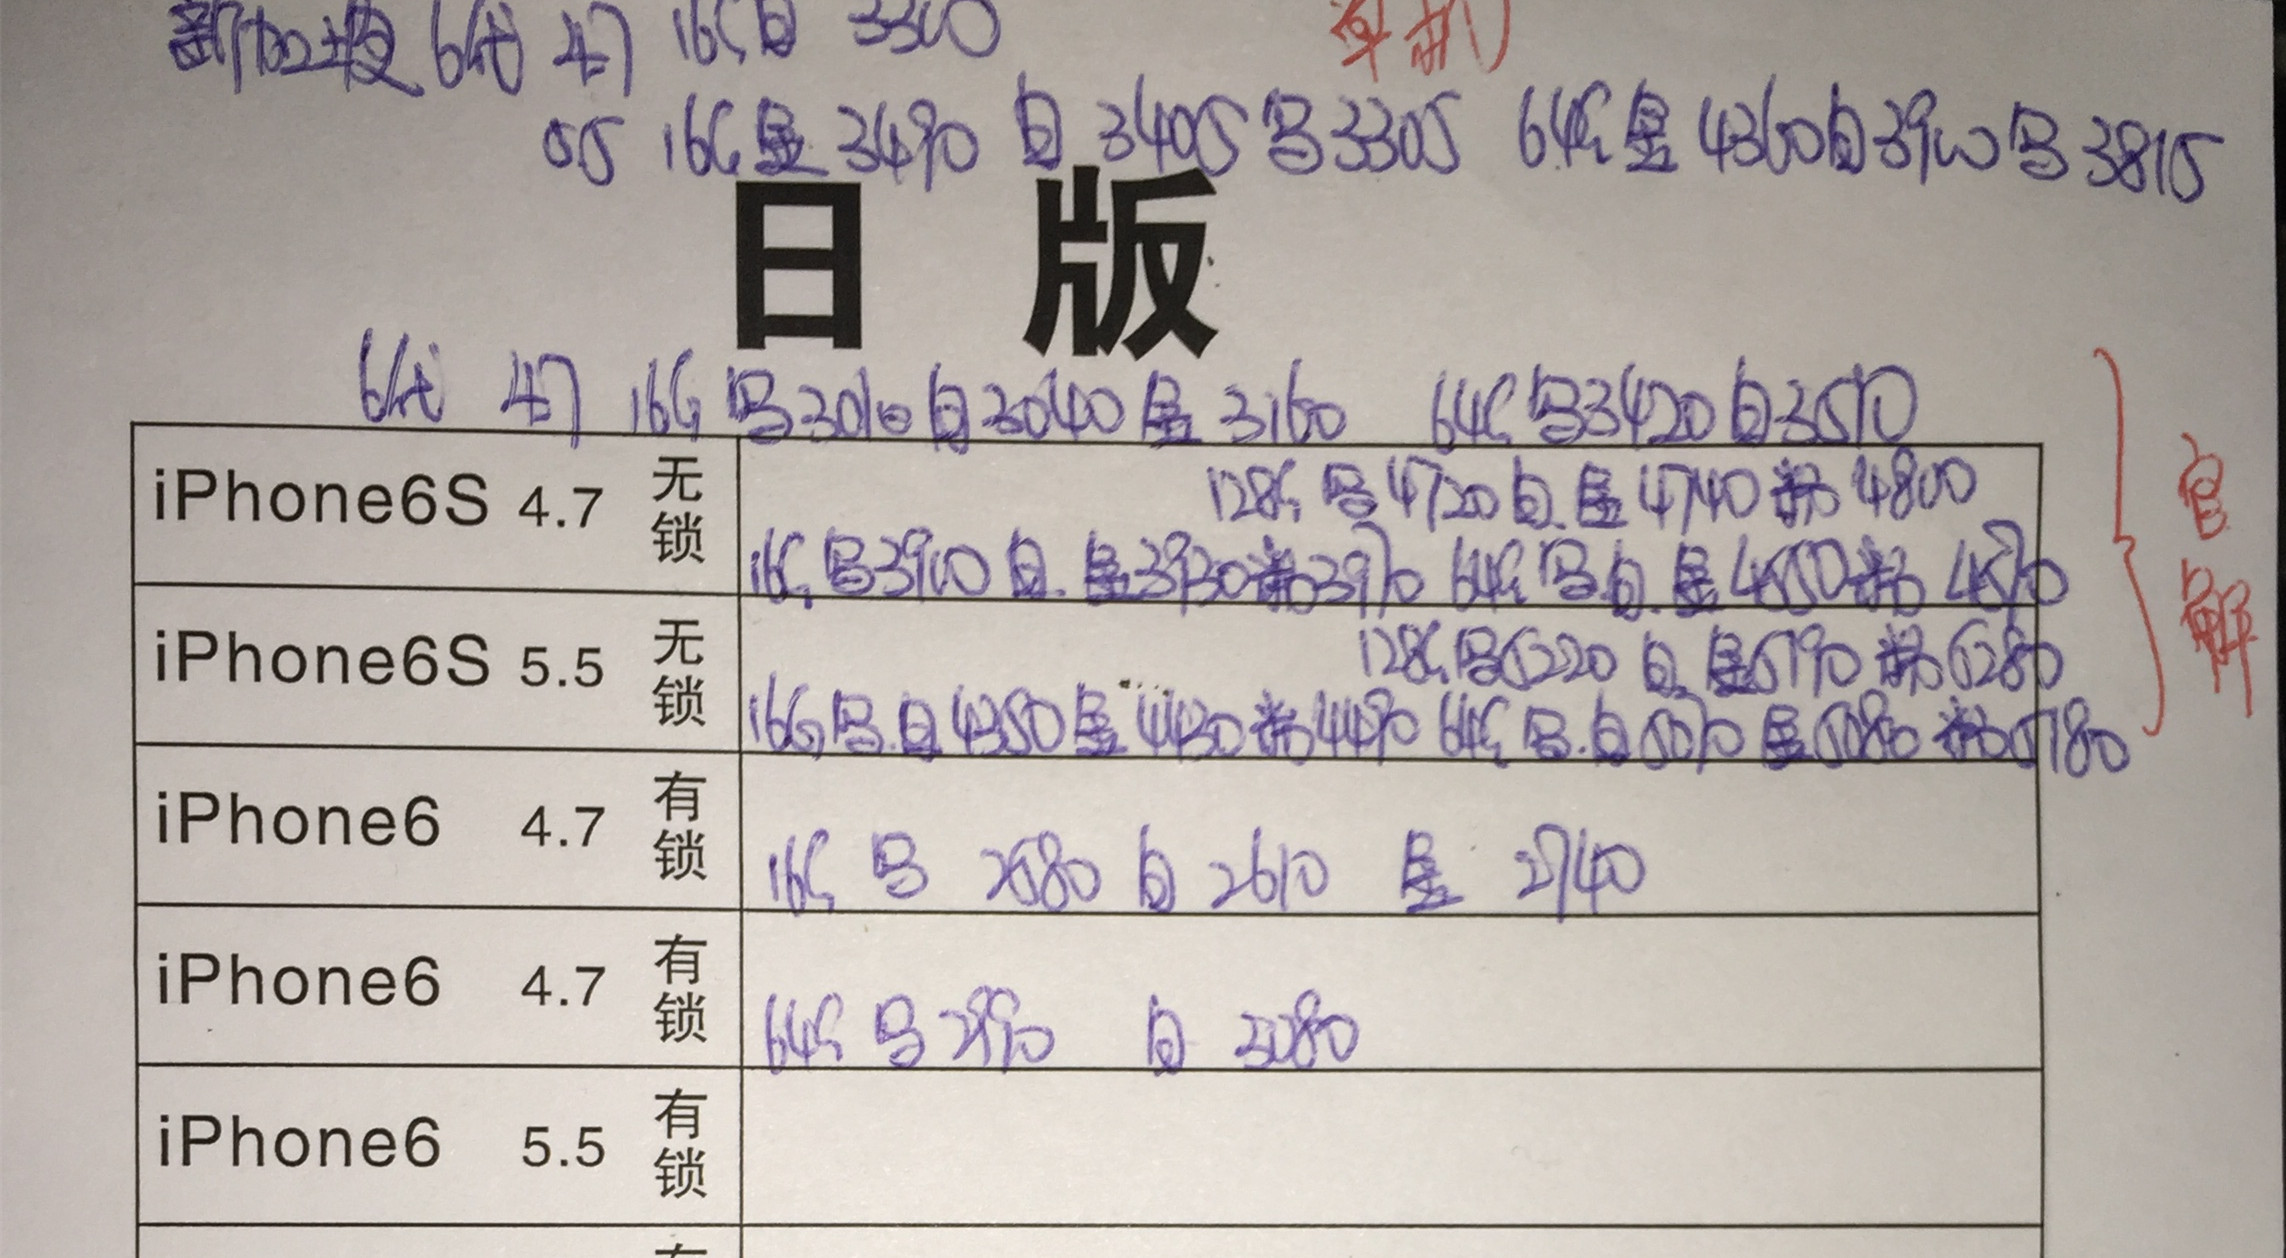 新加坡 6代 47 16G白 3300 单机
55 16G金3490 白3405 马3305 64G金4360白3900马3815
日版
6代 47 16G 马3010白3040金3160 64G马3420白3510
iPhone6S 4.7 无锁
128G 马4720白.金4740粉4800
16G马3900白.金3930粉3970 64G马.白.金4550粉4570
iPhone6S 5.5 无锁
128G马5220白.金5190粉5280
16G马.白4350金4430粉4490 64G马.白5070金5080粉5180
官解
iPhone6 4.7 有锁
16G 马 2580 白 2610 金 2740
iPhone6 4.7 有锁
64G 马2990 白 3080
iPhone6 5.5 有锁